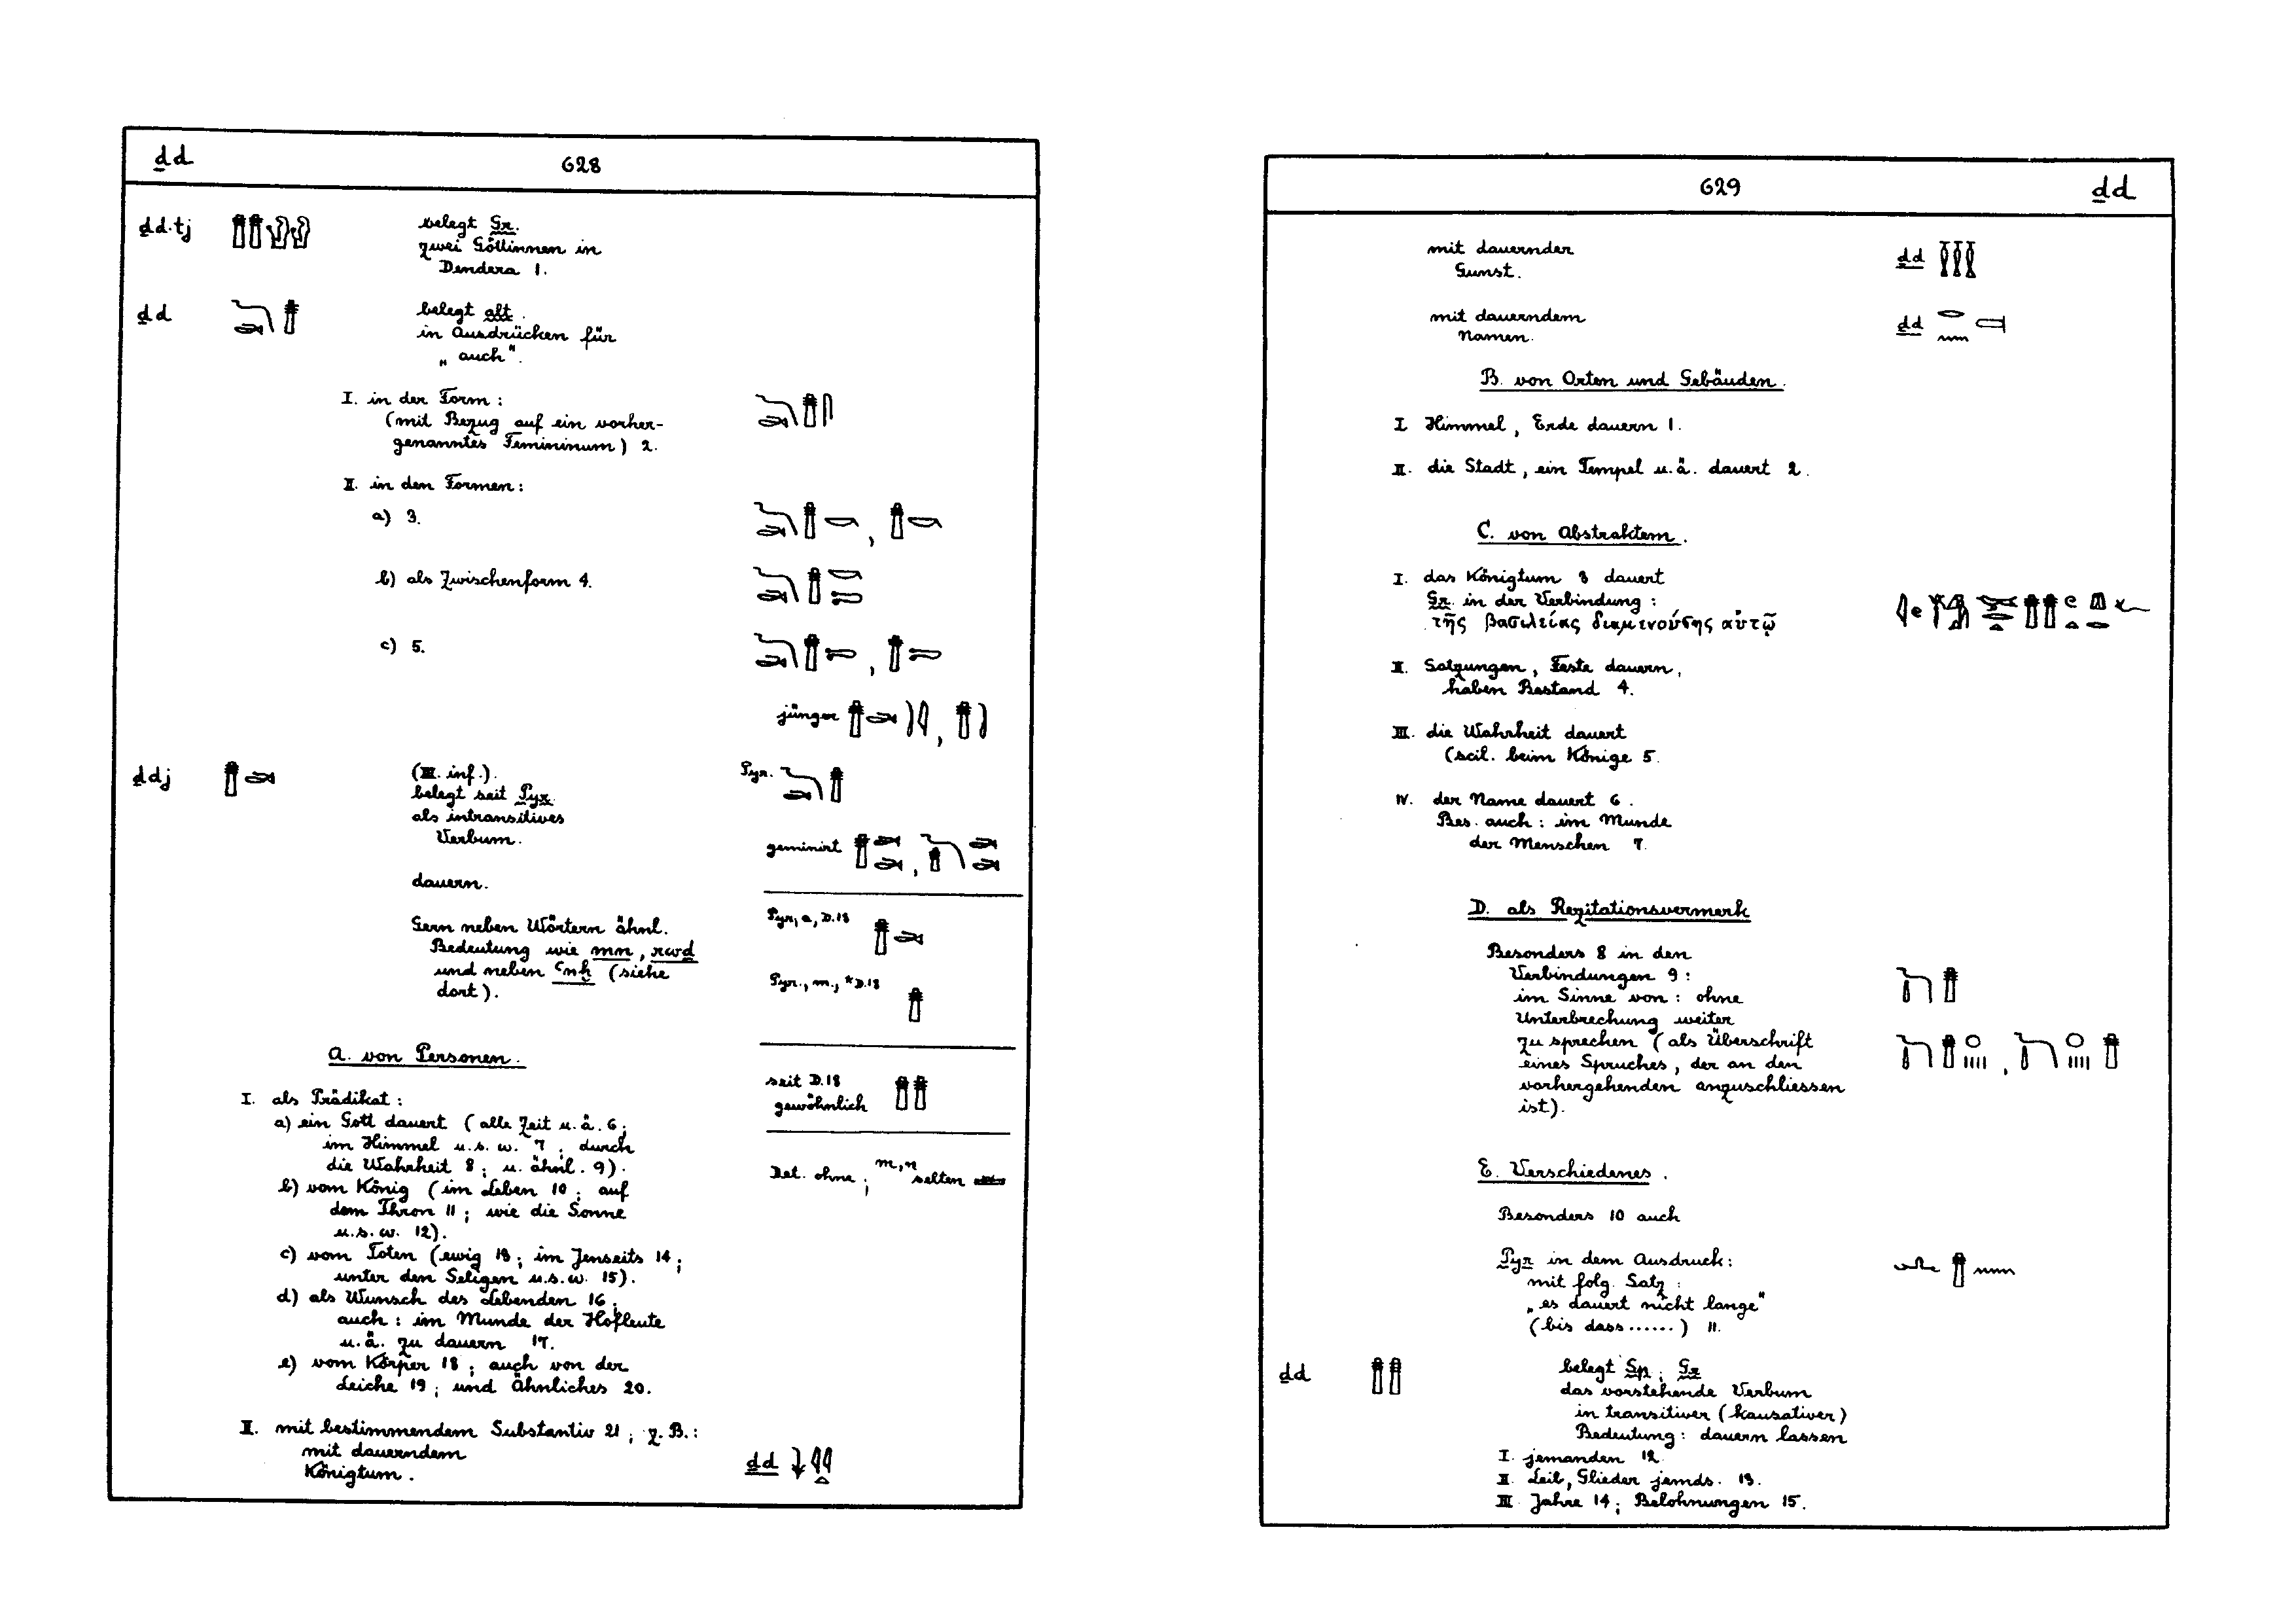 ḏd 628
ḏd.tj belegt Gr.
zwei Göttinnen in
Dendera 1.
ḏd belegt alt.
in Ausdrücken für
„auch".
I. in der Form:
(mit Bezug auf ein vorher-
genanntes Femininum) 2.
II. in den Formen:
a) 3.
b) als Zwischenform 4.
c) 5.
jünger
ḏdj (III. inf.).
belegt seit Pyr.
als intransitives
Verbum.
Pyr.
geminirt
dauern.
Gern neben Wörtern ähnl.
Bedeutung wie mn, rwḏ
und neben ꜥnḫ (siehe
dort).
Pyr., a, D.18
Pyr., m., *D.18
seit D.18
gewöhnlich
Det. ohne; m, n selten
A. von Personen.
I. als Prädikat:
a) ein Gott dauert (alle Zeit u.ä. 6;
im Himmel u.s.w. 7; durch
die Wahrheit 8; u. ähnl. 9).
b) vom König (im Leben 10; auf
dem Thron 11; wie die Sonne
u.s.w. 12).
c) vom Toten (ewig 13; im Jenseits 14;
unter den Seligen u.s.w. 15).
d) als Wunsch des Lebenden 16;
auch: im Munde der Hofleute
u.ä. zu dauern 17.
e) vom Körper 18; auch von der
Leiche 19; und Ähnliches 20.
II. mit bestimmendem Substantiv 21; z.B.:
mit dauerndem
Königtum. ḏd
629 ḏd
mit dauernder
Gunst. ḏd
mit dauerndem
Namen. ḏd
B. von Orten und Gebäuden.
I. Himmel, Erde dauern 1.
II. die Stadt, ein Tempel u.ä. dauert 2.
C. von Abstraktem.
I. das Königtum 3 dauert
Gr. in der Verbindung:
τῆς βασιλείας διαμενούσης αὐτῷ
II. Satzungen, Feste dauern,
haben Bestand 4.
III. die Wahrheit dauert
(scil. beim Könige 5.
IV. der Name dauert 6.
Bes. auch: im Munde
der Menschen 7.
D. als Rezitationsvermerk
Besonders 8 in den
Verbindungen 9:
im Sinne von: ohne
Unterbrechung weiter
zu sprechen (als Überschrift
eines Spruches, der an den
vorhergehenden anzuschliessen
ist).
E. Verschiedenes.
Besonders 10 auch
Pyr in dem Ausdruck:
mit folg. Satz:
„es dauert nicht lange"
(bis dass......) 11.
ḏd belegt Sp.; Gr.
das vorstehende Verbum
in transitiver (kausativer)
Bedeutung: dauern lassen
I. jemanden 12.
II. Leib, Glieder jemds. 13.
III. Jahre 14; Belohnungen 15.